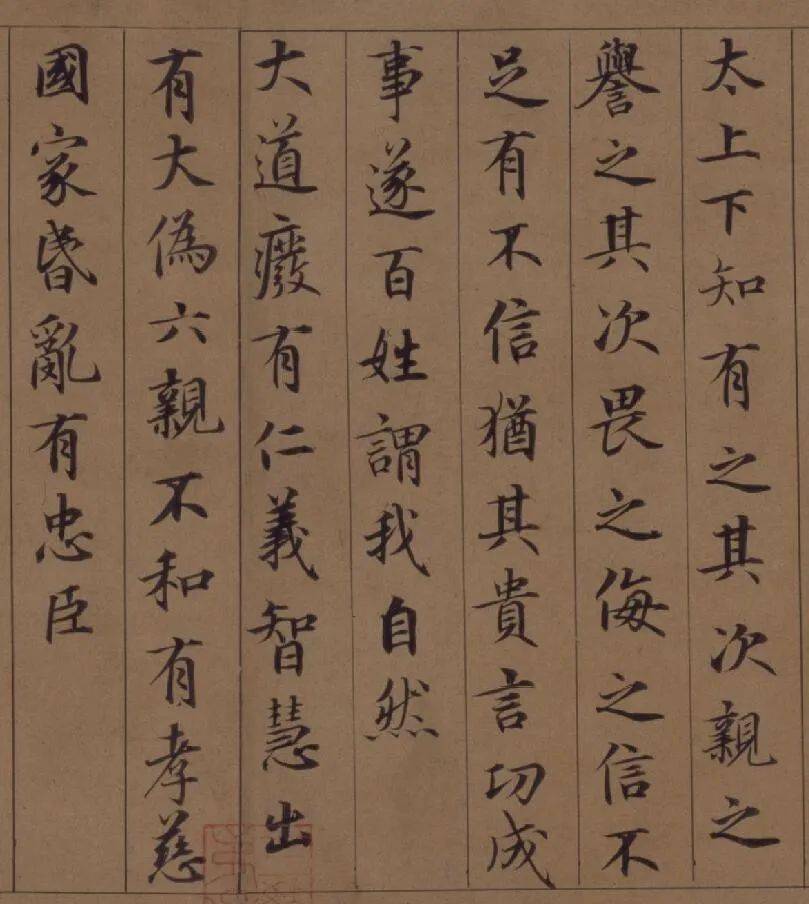 太上下知有之其次親之
譽之其次畏之侮之信不
足有不信猶其貴言功成
事遂百姓謂我自然
大道癈有仁義智慧出
有大偽六親不和有孝慈
國家昬亂有忠臣